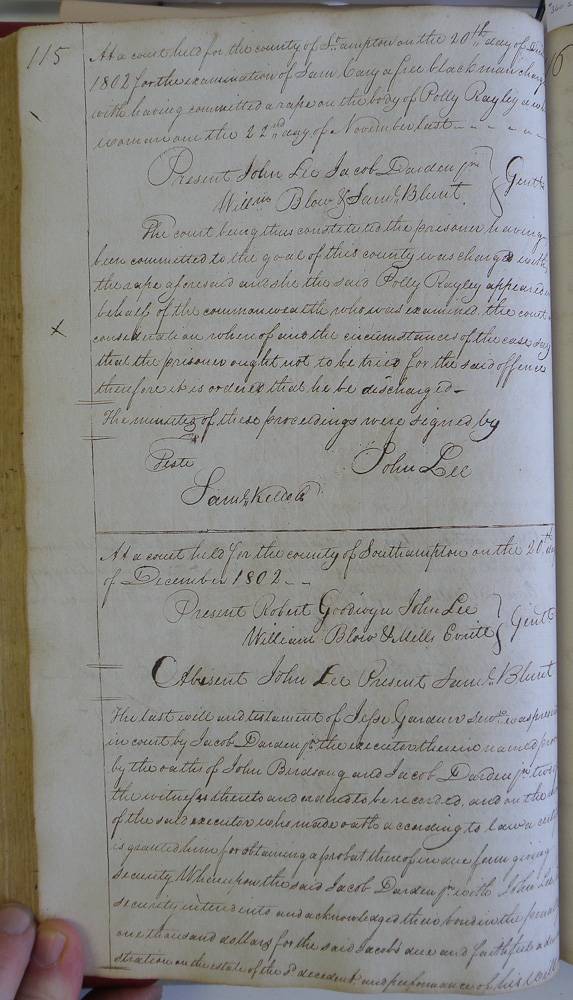 115
At a court held for the county of So.ampton on the 20th day of
1802 for the examination of Sam. Cary a free black man
with having committed a rape on the body of Polly Rayley a
woman on the 22nd day of November last
Present John Lee Jacob Darden jr.
Willm Blow & Saml. Blunt. Gentn
The court being thus constituted the prisoner having
been committed to the goal of this county was charged with
the rape aforesaid and she the said Polly Rayley appeared
behalf of the commonwealth who was examined, the court
consideration whereof and the circumstances of the case
that the prisoner ought not to be tried for the said offence
therefore it is ordered that he be discharged
The minutes of these proceedings were signed by
Teste John Lee
Saml. Kello
At a court held for the county of Southampton on the 20th day
of December 1802
Present Robert Goodwyn John Lee
William Blow & Mills Gentn
Absent John Lee Present Saml. Blunt
The last will and testament of Jesse Gardner was
in court by Jacob Darden jr. the executor therein named
by the oaths of John Birdsong and Jacob Darden jr. two of
the witnesses thereto and ordered to be recorded, and on the
of the said executor who made oath according to law a
is granted him for obtaining a probat thereof in due form giving
security Whereupon the said Jacob Darden jr. with John Lee
security entered into and acknowledged their bond in the penalty
one thousand dollars for the said Jacob's due and faithful
stration on the estate of the sd. decedent and performance of his will